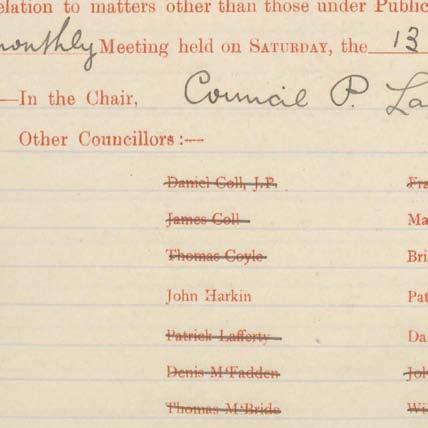 elation to matters other than those under Public
monthly Meeting held on SATURDAY, the 13
—In the Chair, Council P. La
Other Councillors :—
Daniel Coll, J.P. Fra
James Coll Ma
Thomas Coyle Bri
John Harkin Pat
Patrick Lafferty Da
Denis M'Fadden Joh
Thomas M'Bride Wi